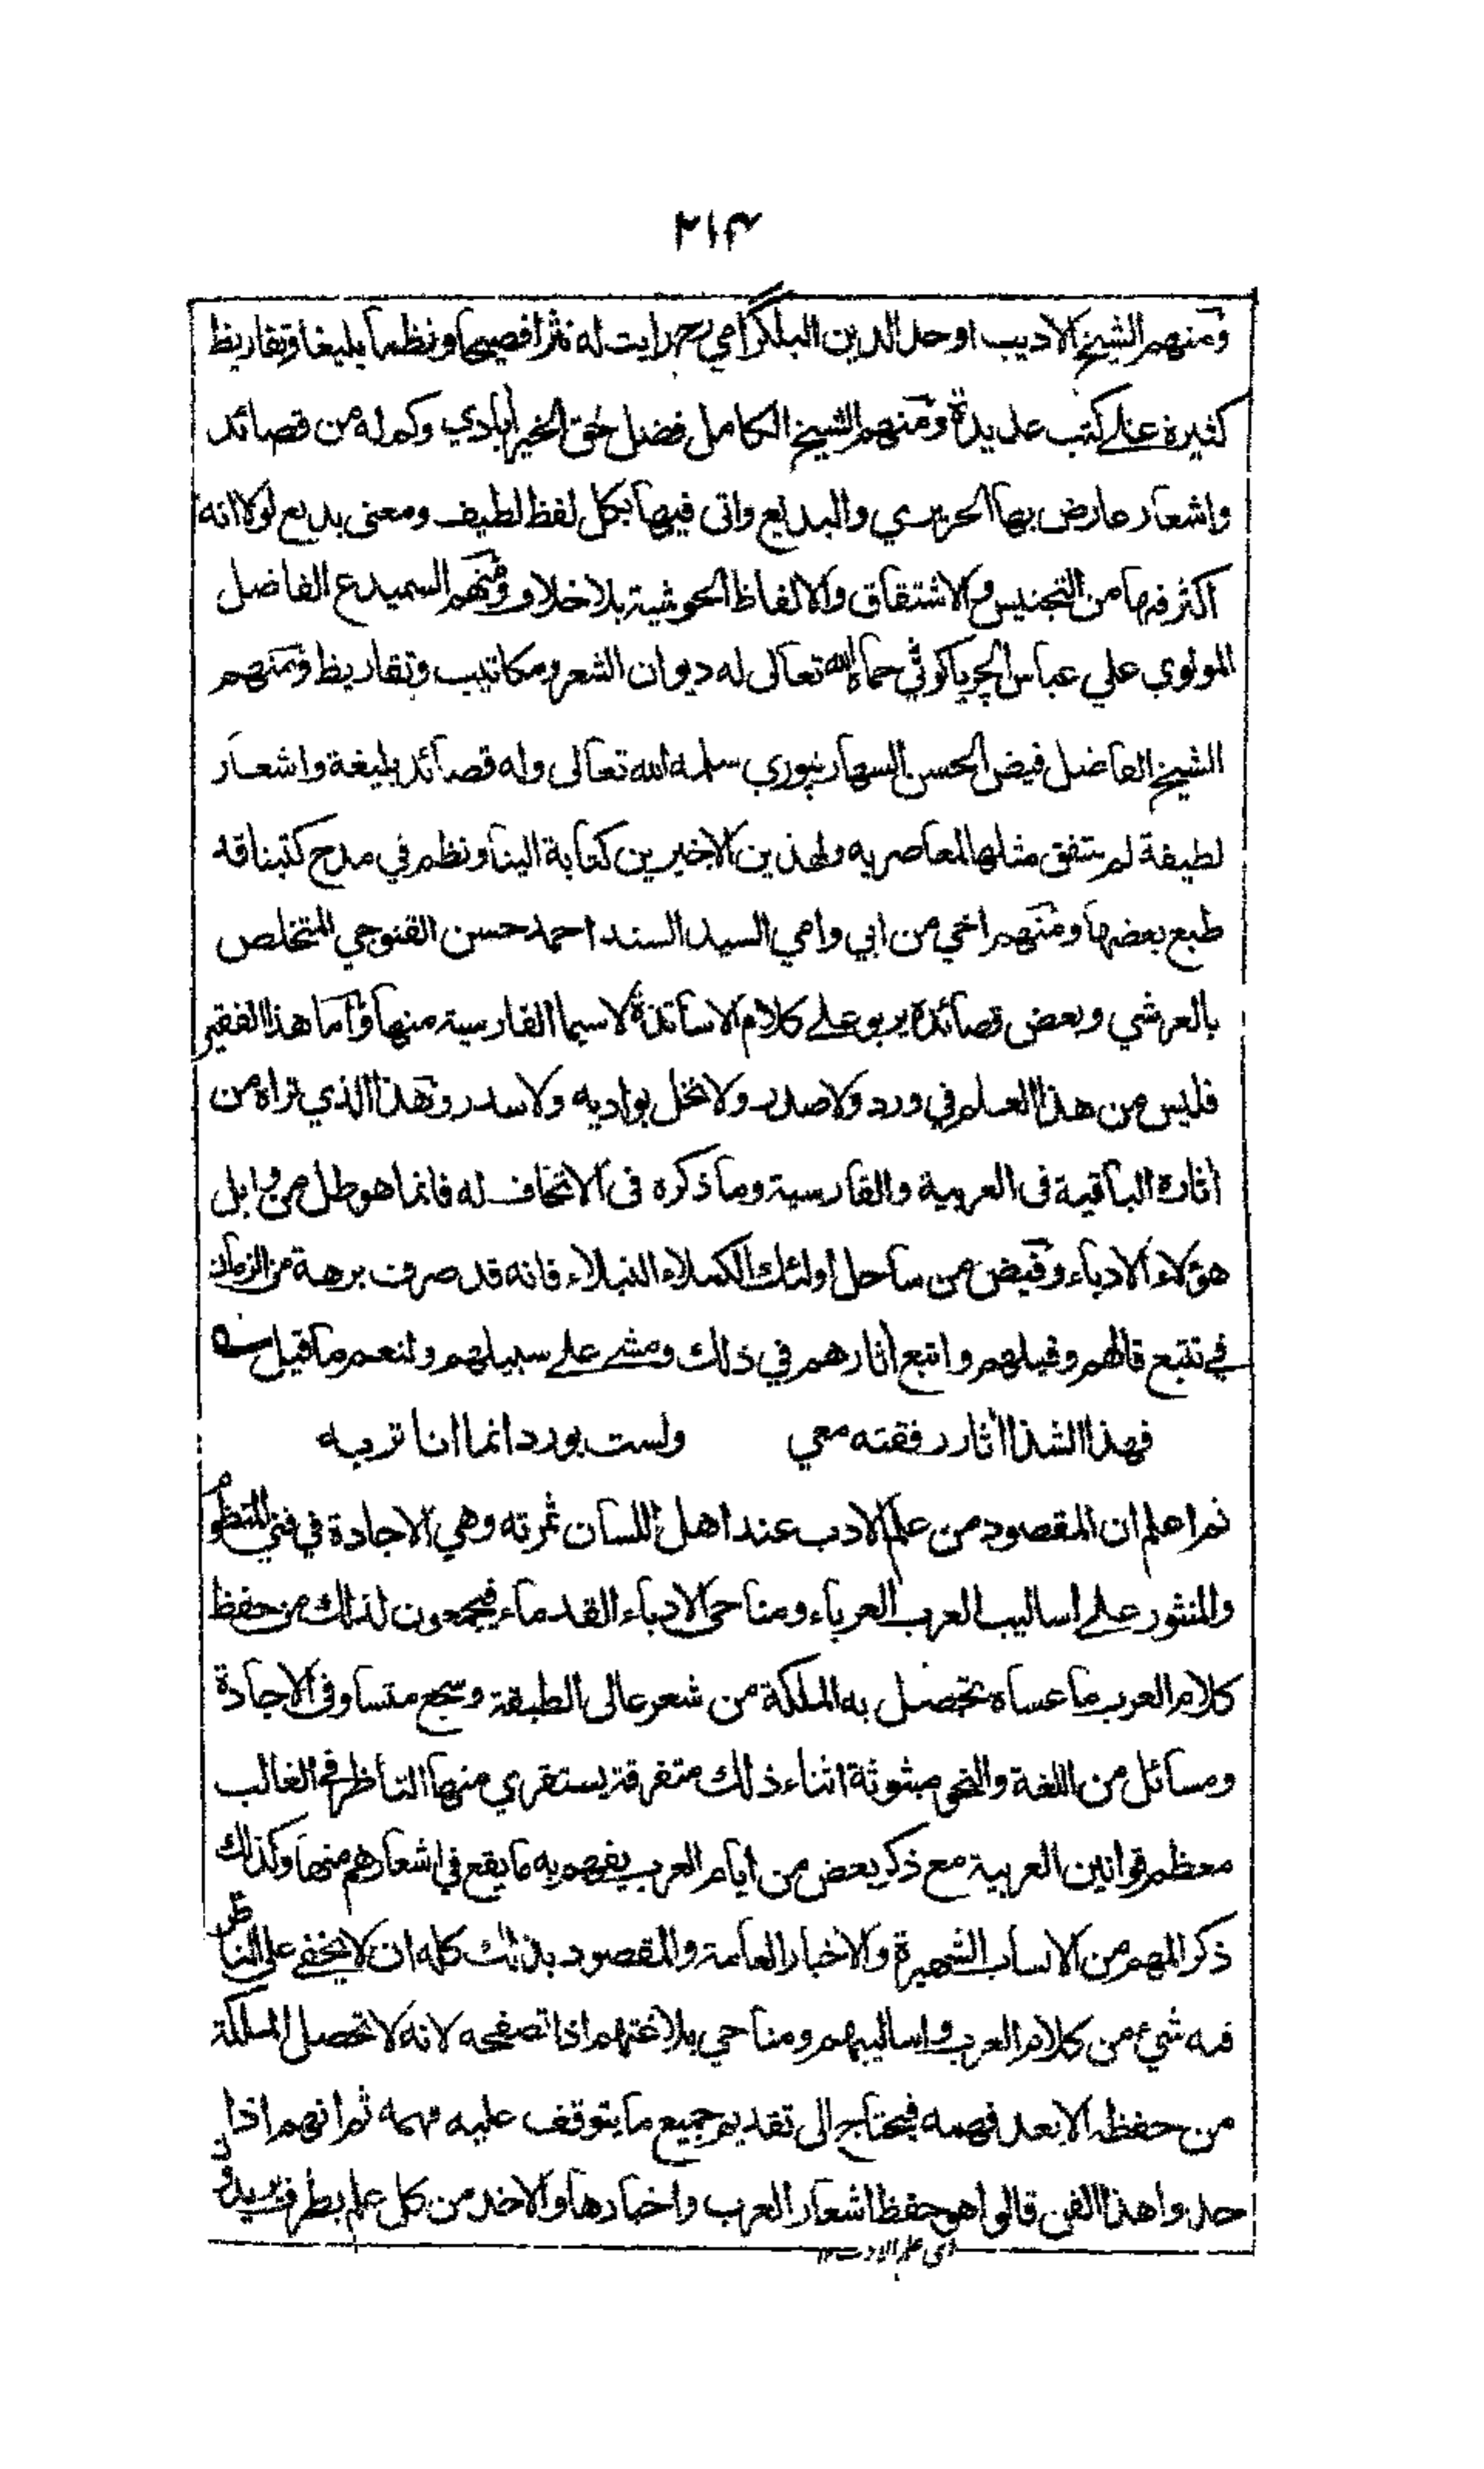 ٢١٤
ومنهم الشيخ الاديب اوحد الدين البلگرامي رح رايت له نثرا فصيحا ونظما بليغا وتقاريظ
كثيرة على كتب عديدة ومنهم الشيخ الكامل فضل حق الخيرابادي وكم له من قصائد
واشعار عارض بها الحريري والبديع واتى فيها بكل لفظ لطيف ومعنى بديع لولا انه
اكثر فيها من التجنيس والاشتقاق والالفاظ الحوشية بلا خلاو ومنهم السميدع الفاضل
المولوي علي عباس الچرياكوٹي حماه الله تعالى له ديوان الشعر ومكاتيب وتقاريظ ومنهم
الشيخ الفاضل فيض الحسن السهارنپوري سلمه الله تعالى وله قصائد بليغة واشعار
لطيفة لم يتفق مثلها لمعاصريه ولهذين الاخيرين كتابة الينا ونظم في مدح كتبنا قد
طبع بعضها ومنهم اخي من ابي وامي السيد السند احمد حسن القنوجي المتخلص
بالعرشي وبعض قصائده يربو على كلام الاساتذة لا سيما الفارسية منها واما هذا الفقير
فليس من هذا العلم في ورد ولا صدر ولا نخل بواديه ولا سدر وهذا الذي تراه من
اثاره الباقية في العربية والفارسية وما ذكره في الاتحاف له فانما هو طل من وابل
هؤلاء الادباء وفيض من ساحل اولئك الكملاء النبلاء فانه قد صرف برهة من الزمان
في تتبع قالهم وقيلهم واتبع اثارهم في ذلك ومشى على سبيلهم ولنعم ما قيل
فهذا الشذا اثار رفقته معي ولست بورد انما انا تربه
ثم اعلم ان المقصود من علم الادب عند اهل اللسان ثمرته وهي الاجادة في فني المنظوم
والمنثور على اساليب العرب العرباء ومناحى الادباء القدماء فيجمعون لذلك من حفظ
كلام العرب ما عساه تحصل به الملكة من شعر عالى الطبقة وسجع متساو في الاجادة
ومسائل من اللغة والنحو مبثوثة اثناء ذلك متفرقة يستقري منها الناظر في الغالب
معظم قوانين العربية مع ذكر بعض من ايام العرب يفهم به ما يقع في اشعارهم منها وكذلك
ذكر المهم من الانساب الشهيرة والاخبار العامة والمقصود بذلك كله ان لا يخفى على الناظر
فيه شيء من كلام العرب واساليبهم ومناحي بلاغتهم اذا تصفحه لانه لا تحصل الملكة
من حفظه الا بعد فهمه فيحتاج الى تقديم جميع ما يتوقف عليه فهمه ثم انهم اذا
حدوا هذا الفن قالوا هو حفظ اشعار العرب واخبارها والاخذ من كل علم بطرف يريدون
اى علم الادب ١٢